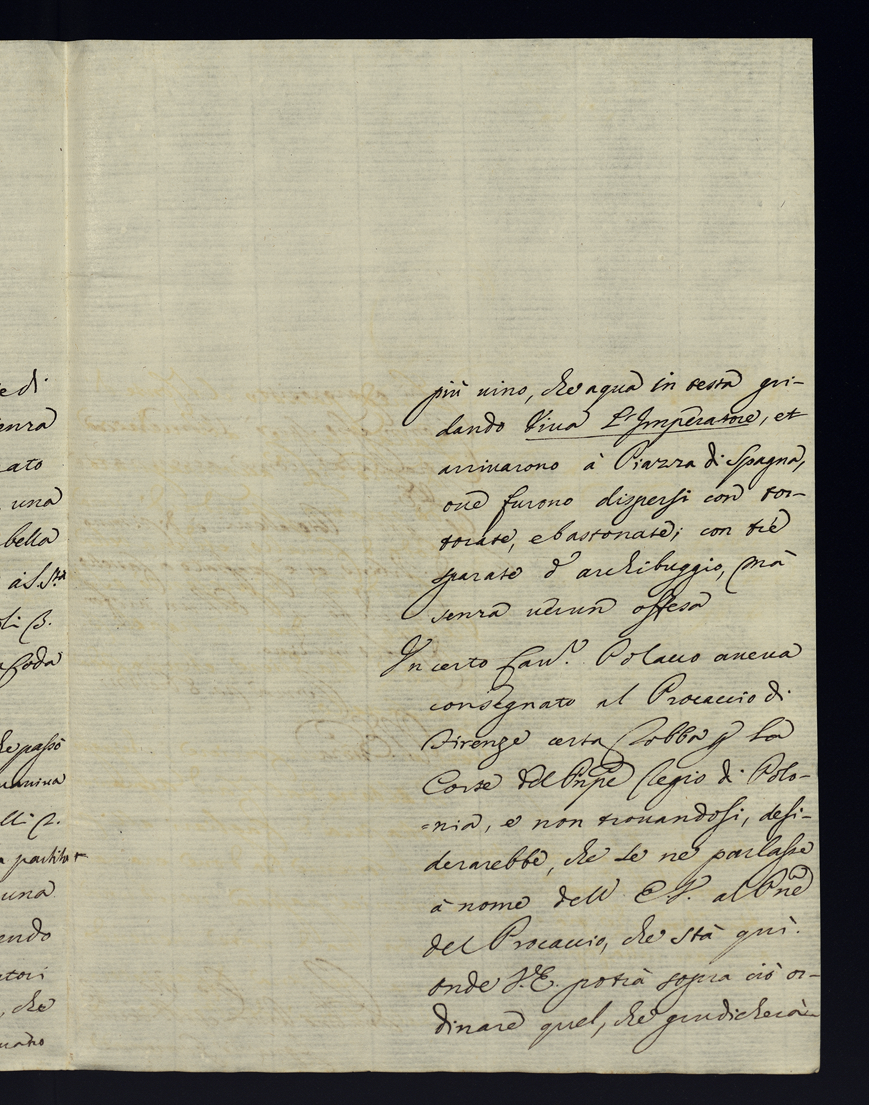 e di
enza
cato
una
bella
à S. Sta
oli S.
Coda
he passò
manina
elli S.
a partita
una
endo
atori
, che
quatro
più uino, che aqua in testa gri-
dando Viua L'Imperatore, et
arriuarono à Piazza di Spagna,
oue furono dispersi con tor-
torate, e bastonate; con trè
sparate d'archibuggio, mà
senza uerun offesa
Un certo Cau.r Polacco aueua
consegnato al Procaccio di
Firenze certa Robba p la
Corte del Pnpe Regio di Polo-
=nia, e non trouandosi, desi-
derarebbe, che se ne parlasse
à nome dell' E.V. al Pne
del Procaccio, che stà quì.
onde V.E. potrà sopra ciò or-
dinare quel, che giudicherà